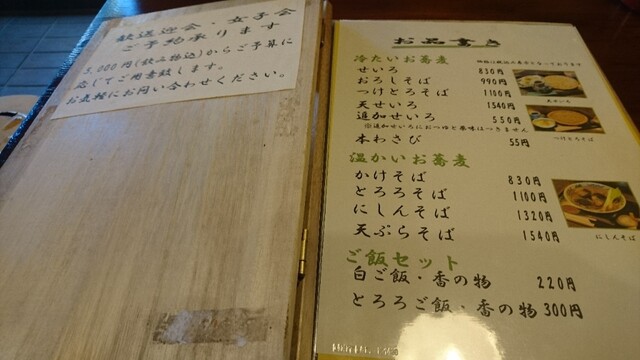 歓送迎会・女子会
ご予約承ります
3,000円(飲み物込)からご予算に
応じてご用意致します。
お気軽にお問い合わせください。
お品書き
冷たいお蕎麦
せいろ 830円
おろしそば 990円
つけとろそば 1100円
天せいろ 1540円
追加せいろ 550円
※追加せいろにおつゆと薬味はつきません
本わさび 55円
天せいろ
つけとろそば
温かいお蕎麦
かけそば 830円
とろろそば 1100円
にしんそば 1320円
天ぷらそば 1540円
にしんそば
ご飯セット
白ご飯・香の物 220円
とろろご飯・香の物 300円